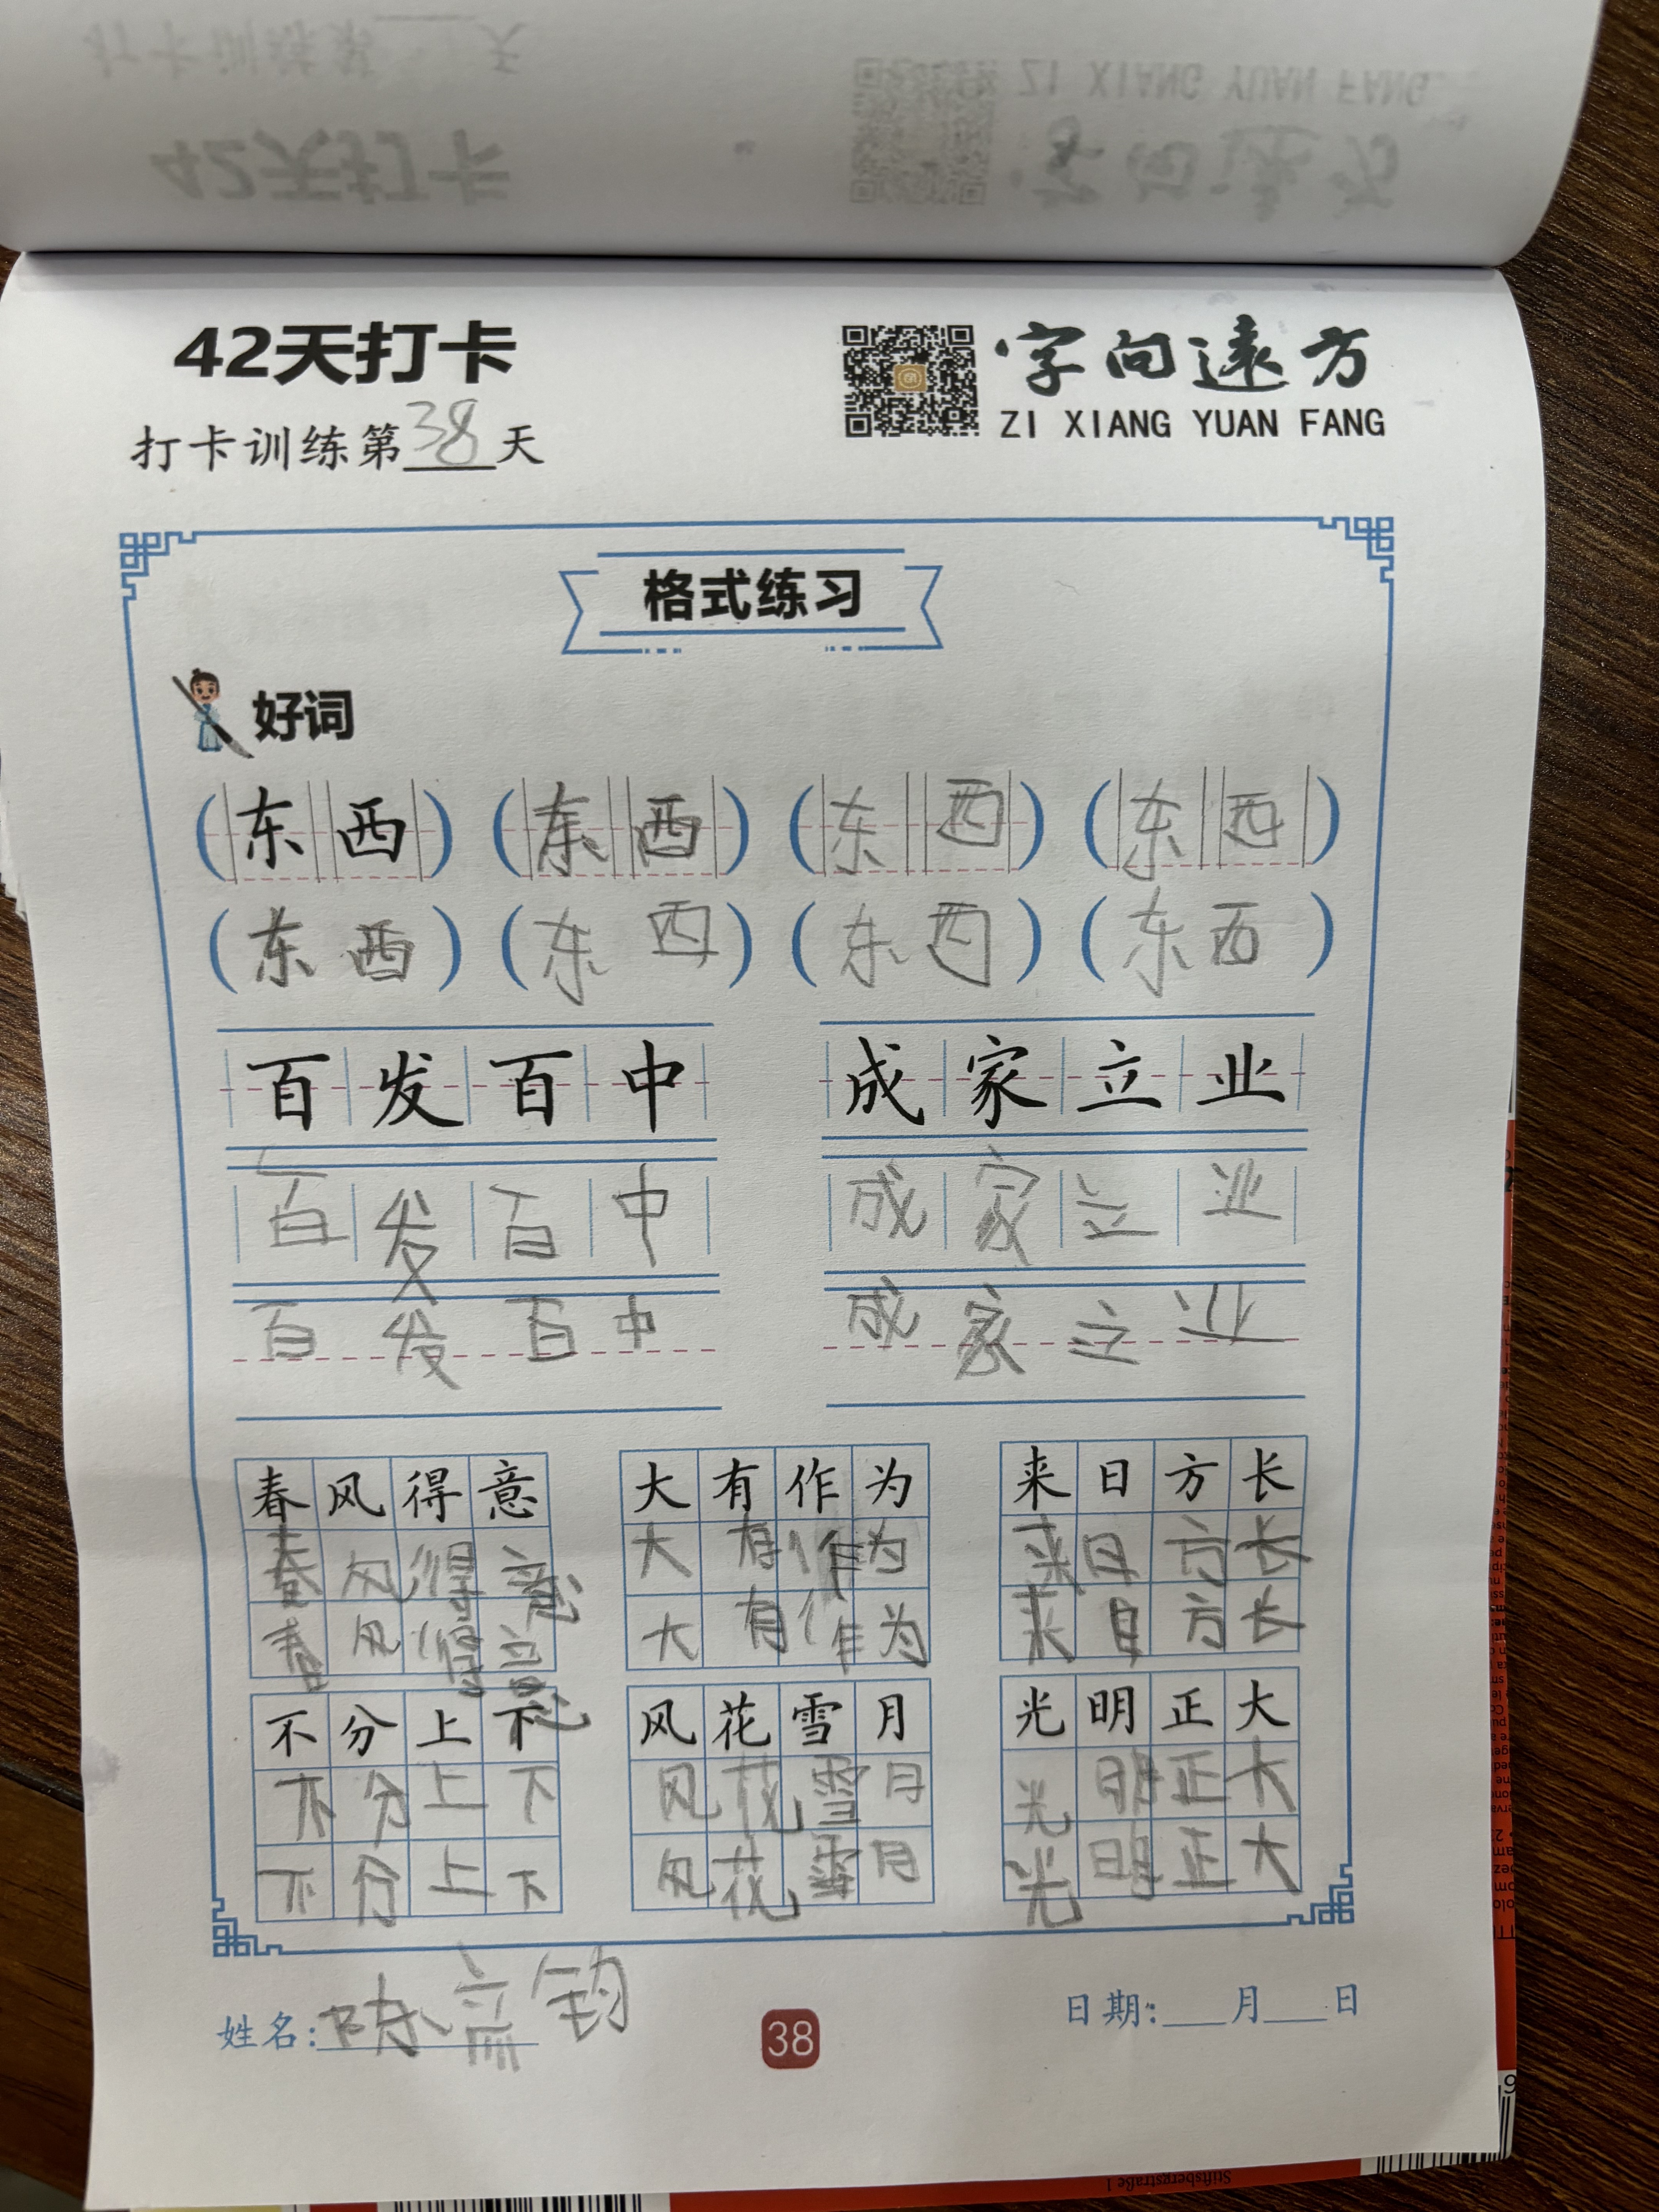 42天打卡
字向远方
ZI XIANG YUAN FANG
打卡训练第38天
格式练习
好词
(东西) (东西) (东西) (东西)
(东西) (东西) (东西) (东西)
百发百中 成家立业
百发百中 成家立业
百发百中 成家立业
春风得意 大有作为 来日方长
春风得意 大有作为 来日方长
春风得意 大有作为 来日方长
不分上下 风花雪月 光明正大
不分上下 风花雪月 光明正大
不分上下 风花雪月 光明正大
姓名: 38 日期:___月___日
Stiftsbergstraße 1